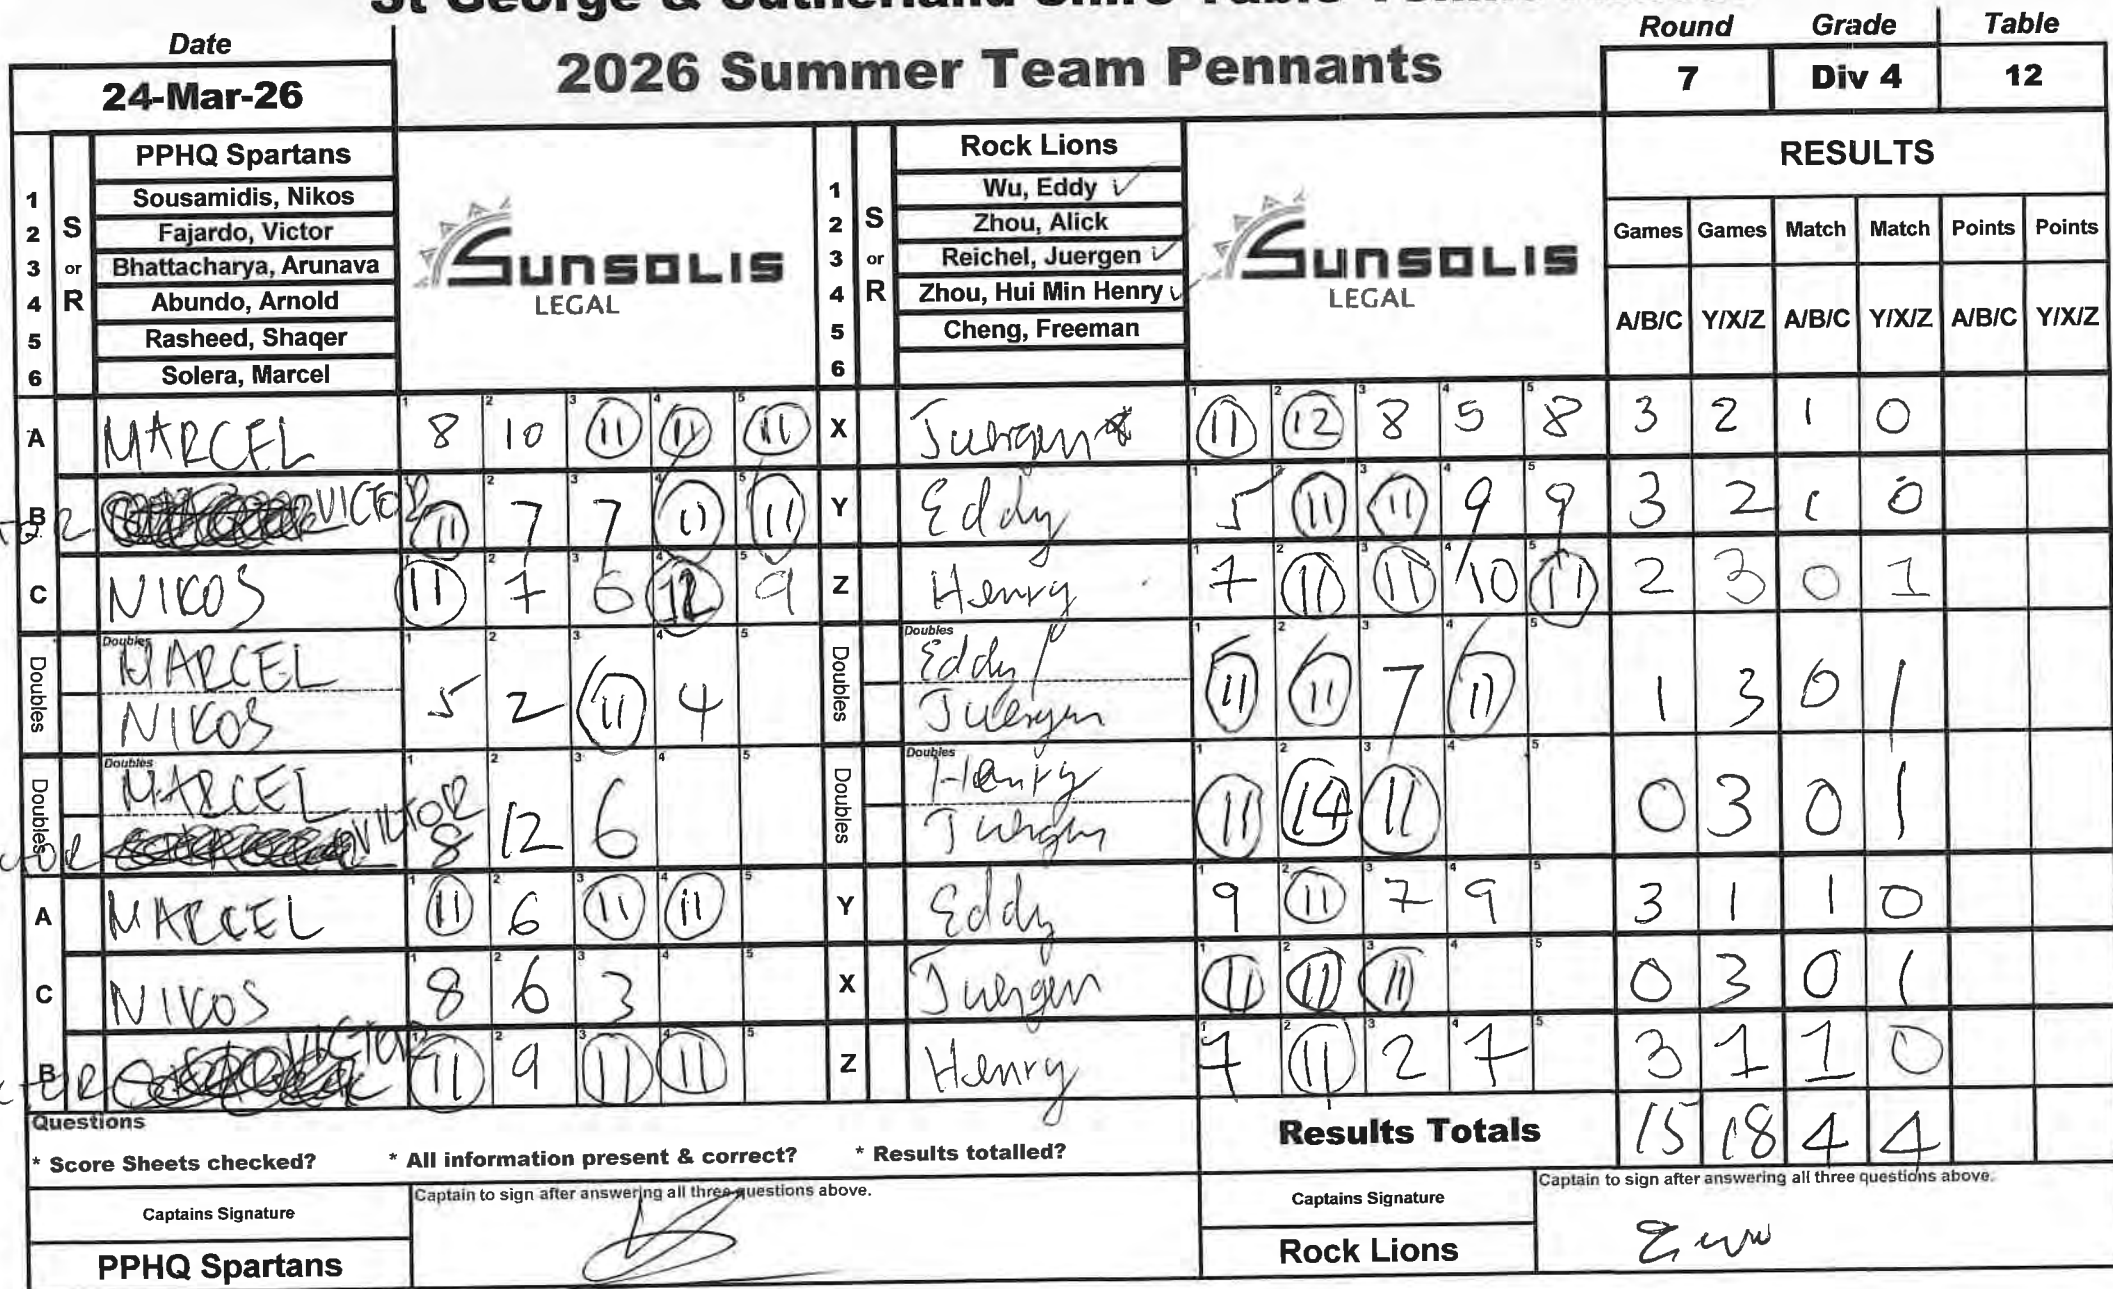 Date
24-Mar-26
2026 Summer Team Pennants
Round Grade Table
7 Div 4 12
PPHQ Spartans
1 Sousamidis, Nikos
2 Fajardo, Victor
3 Bhattacharya, Arunava
4 Abundo, Arnold
5 Rasheed, Shaqer
6 Solera, Marcel
S or R
SUNSOLIS
LEGAL
Rock Lions
1 Wu, Eddy ✓
2 Zhou, Alick
3 Reichel, Juergen ✓
4 Zhou, Hui Min Henry ✓
5 Cheng, Freeman
6
S or R
SUNSOLIS
LEGAL
RESULTS
Games Games Match Match Points Points
A/B/C Y/X/Z A/B/C Y/X/Z A/B/C Y/X/Z
A MARCEL 8 10 11 11 11 X Juergen 11 12 8 5 8 3 2 1 0
B VICTOR 11 7 7 11 11 Y Eddy 5 11 11 9 9 3 2 1 0
C NIKOS 11 7 6 12 9 Z Henry 7 11 11 10 11 2 3 0 1
Doubles MARCEL NIKOS 5 2 11 4 Doubles Eddy / Juergen 11 11 7 11 1 3 0 1
Doubles MARCEL VICTOR 8 12 6 Doubles Henry Juergen 11 14 11 0 3 0 1
A MARCEL 11 6 11 11 Y Eddy 9 11 7 9 3 1 1 0
C NIKOS 8 6 3 X Juergen 11 11 11 0 3 0 1
B VICTOR 11 9 11 11 Z Henry 7 11 2 7 3 1 1 0
Questions
* Score Sheets checked? * All information present & correct? * Results totalled?
Results Totals 15 18 4 4
Captains Signature
Captain to sign after answering all three questions above.
PPHQ Spartans
Captains Signature
Captain to sign after answering all three questions above.
Rock Lions